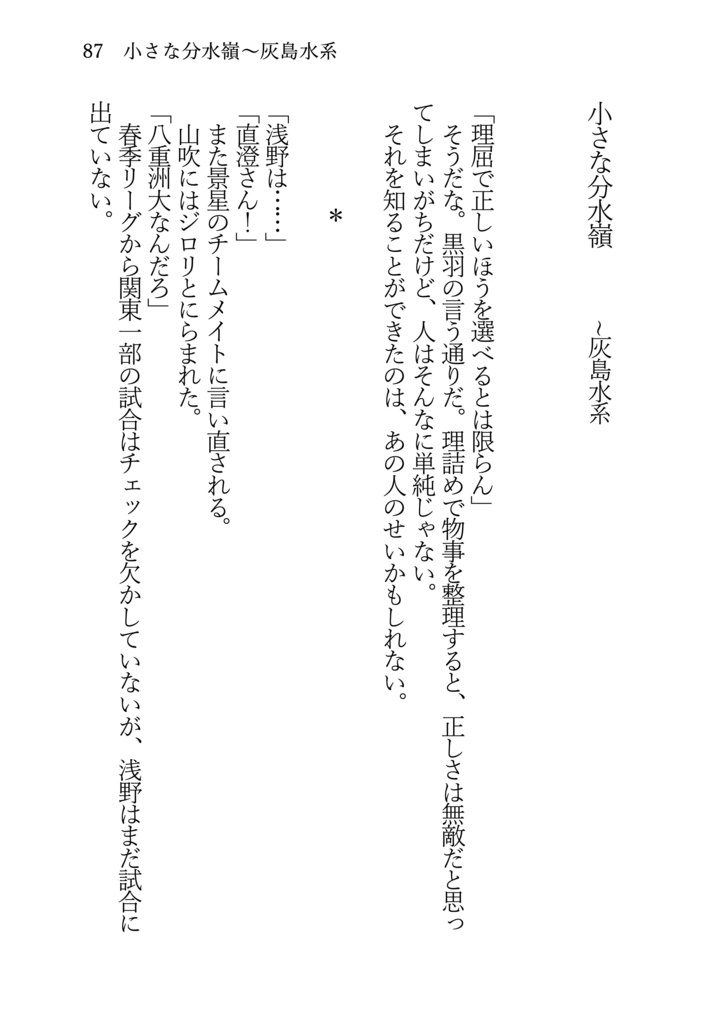 87　小さな分水嶺～灰島水系
小さな分水嶺　　～灰島水系
「理屈で正しいほうを選べるとは限らん」
　そうだな。黒羽の言う通りだ。理詰めで物事を整理すると、正しさは無敵だと思っ
てしまいがちだけど、人はそんなに単純じゃない。
　それを知ることができたのは、あの人のせいかもしれない。
＊
「浅野は……」
「直澄さん！」
　また景星のチームメイトに言い直される。
　山吹にはジロリとにらまれた。
「八重洲大なんだろ」
　春季リーグから関東一部の試合はチェックを欠かしていないが、浅野はまだ試合に
出ていない。